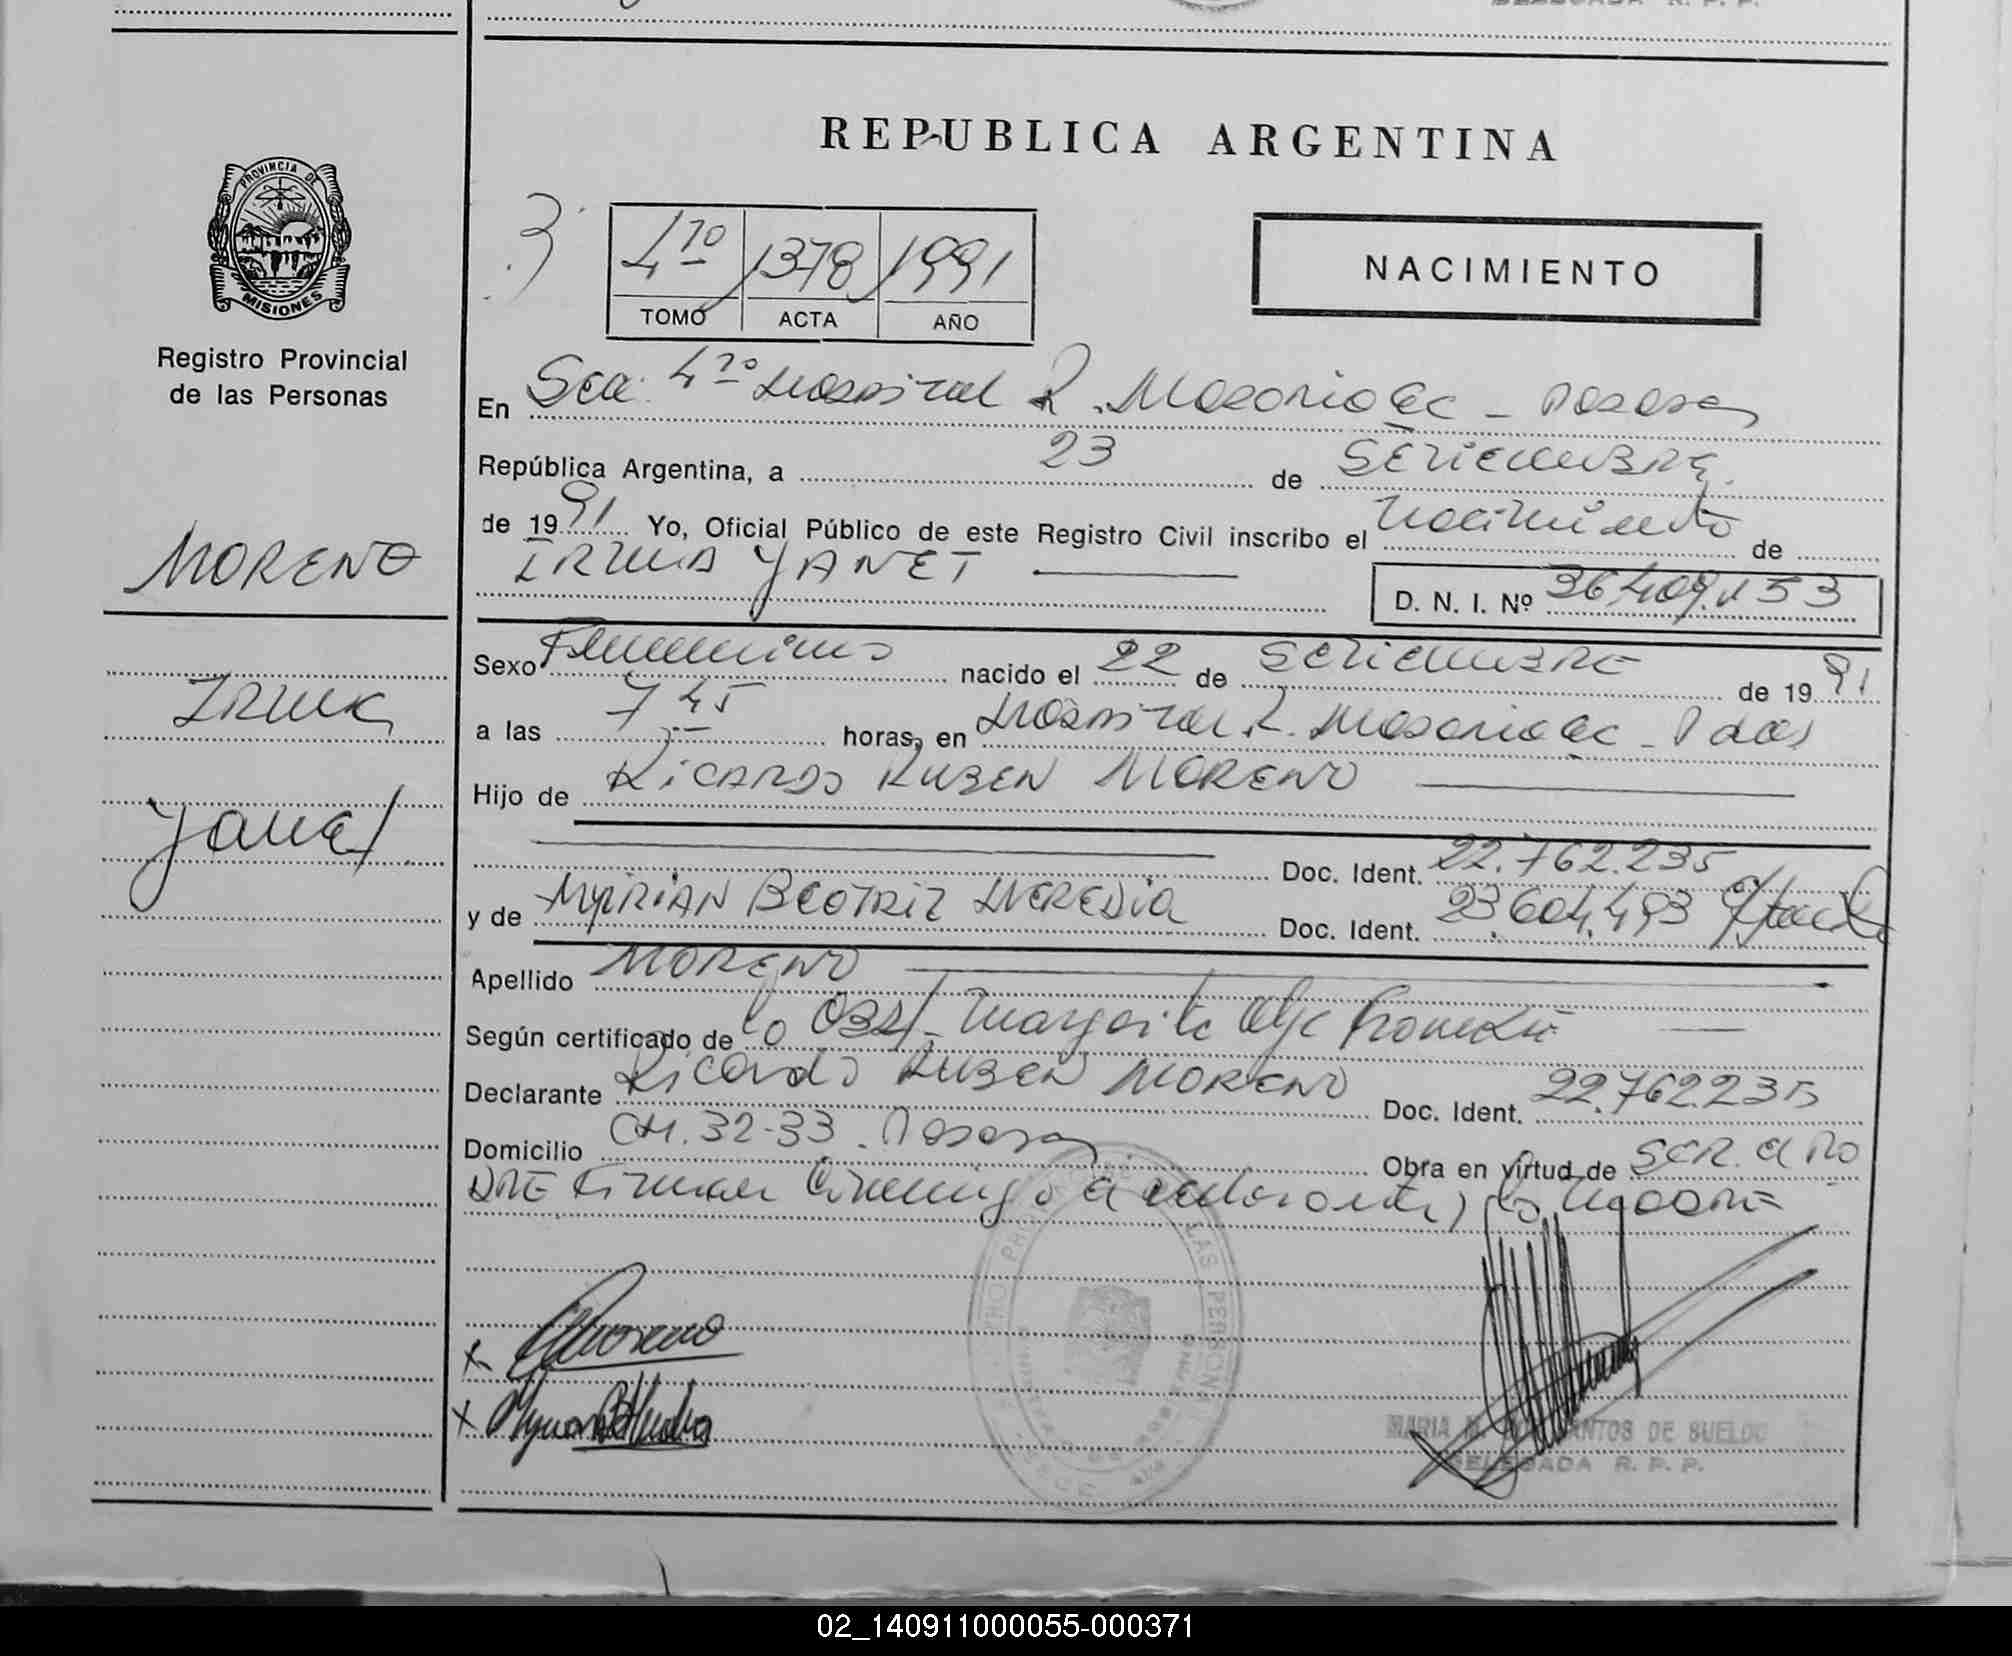 PROVINCIA DE
MISIONES
Registro Provincial
de las Personas
MORENO
IRMA
Yanet
REPUBLICA ARGENTINA
3
4to 1378 1991
TOMO ACTA AÑO
NACIMIENTO
En Sec. 4to Hospital R. Madariaga - Posadas
República Argentina, a 23 de SETIEMBRE
de 1991 Yo, Oficial Público de este Registro Civil inscribo el Nacimiento de
IRMA YANET
D. N. I. Nº 36.409.153
Sexo Femenino nacido el 22 de SETIEMBRE de 1991
a las 7 45 horas, en Hospital R. Madariaga - Pdas
Hijo de RICARDO RUBEN MORENO
Doc. Ident. 22.762.235
y de MYRIAN BEATRIZ HEREDIA Doc. Ident. 23.604.493
Apellido MORENO
Según certificado de la OBST. Margarita Olga
Declarante Ricardo RUBEN MORENO Doc. Ident. 22.762.235
Domicilio CH. 32-33. Posadas Obra en virtud de SER el PA
DRE Firman Conmigo el declarante y la MADRE
x Moreno
x
MARIA M. SANTOS DE SUELDO
DELEGADA R. P. P.
02_140911000055-000371